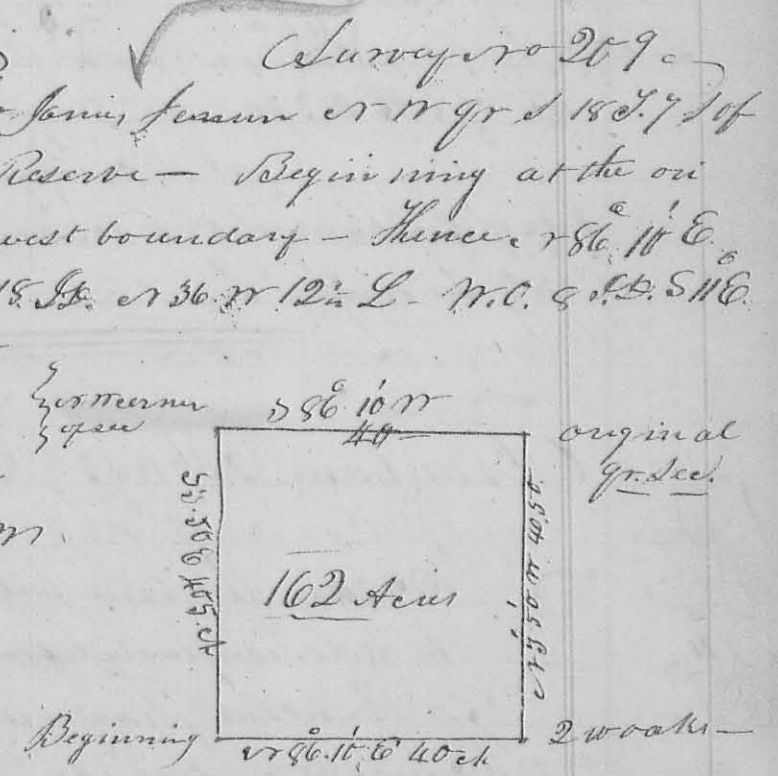 Survey No 209
James N W qr S 18 T. 7 S of
Reserve — Beginning at the ori
west boundary — Thence N 86° 10' E
18. In. N 36 W 12½ L - W.O. 8 I.D. S 11 E
N W corner
of sec
S 86° 10' W
40
original
qr. Sec.
S 3. 50 E 40.5 ch
162 Acres
N 3 50 W 40.50
Beginning
N 86° 10' E 40 ch
2 w oaks —